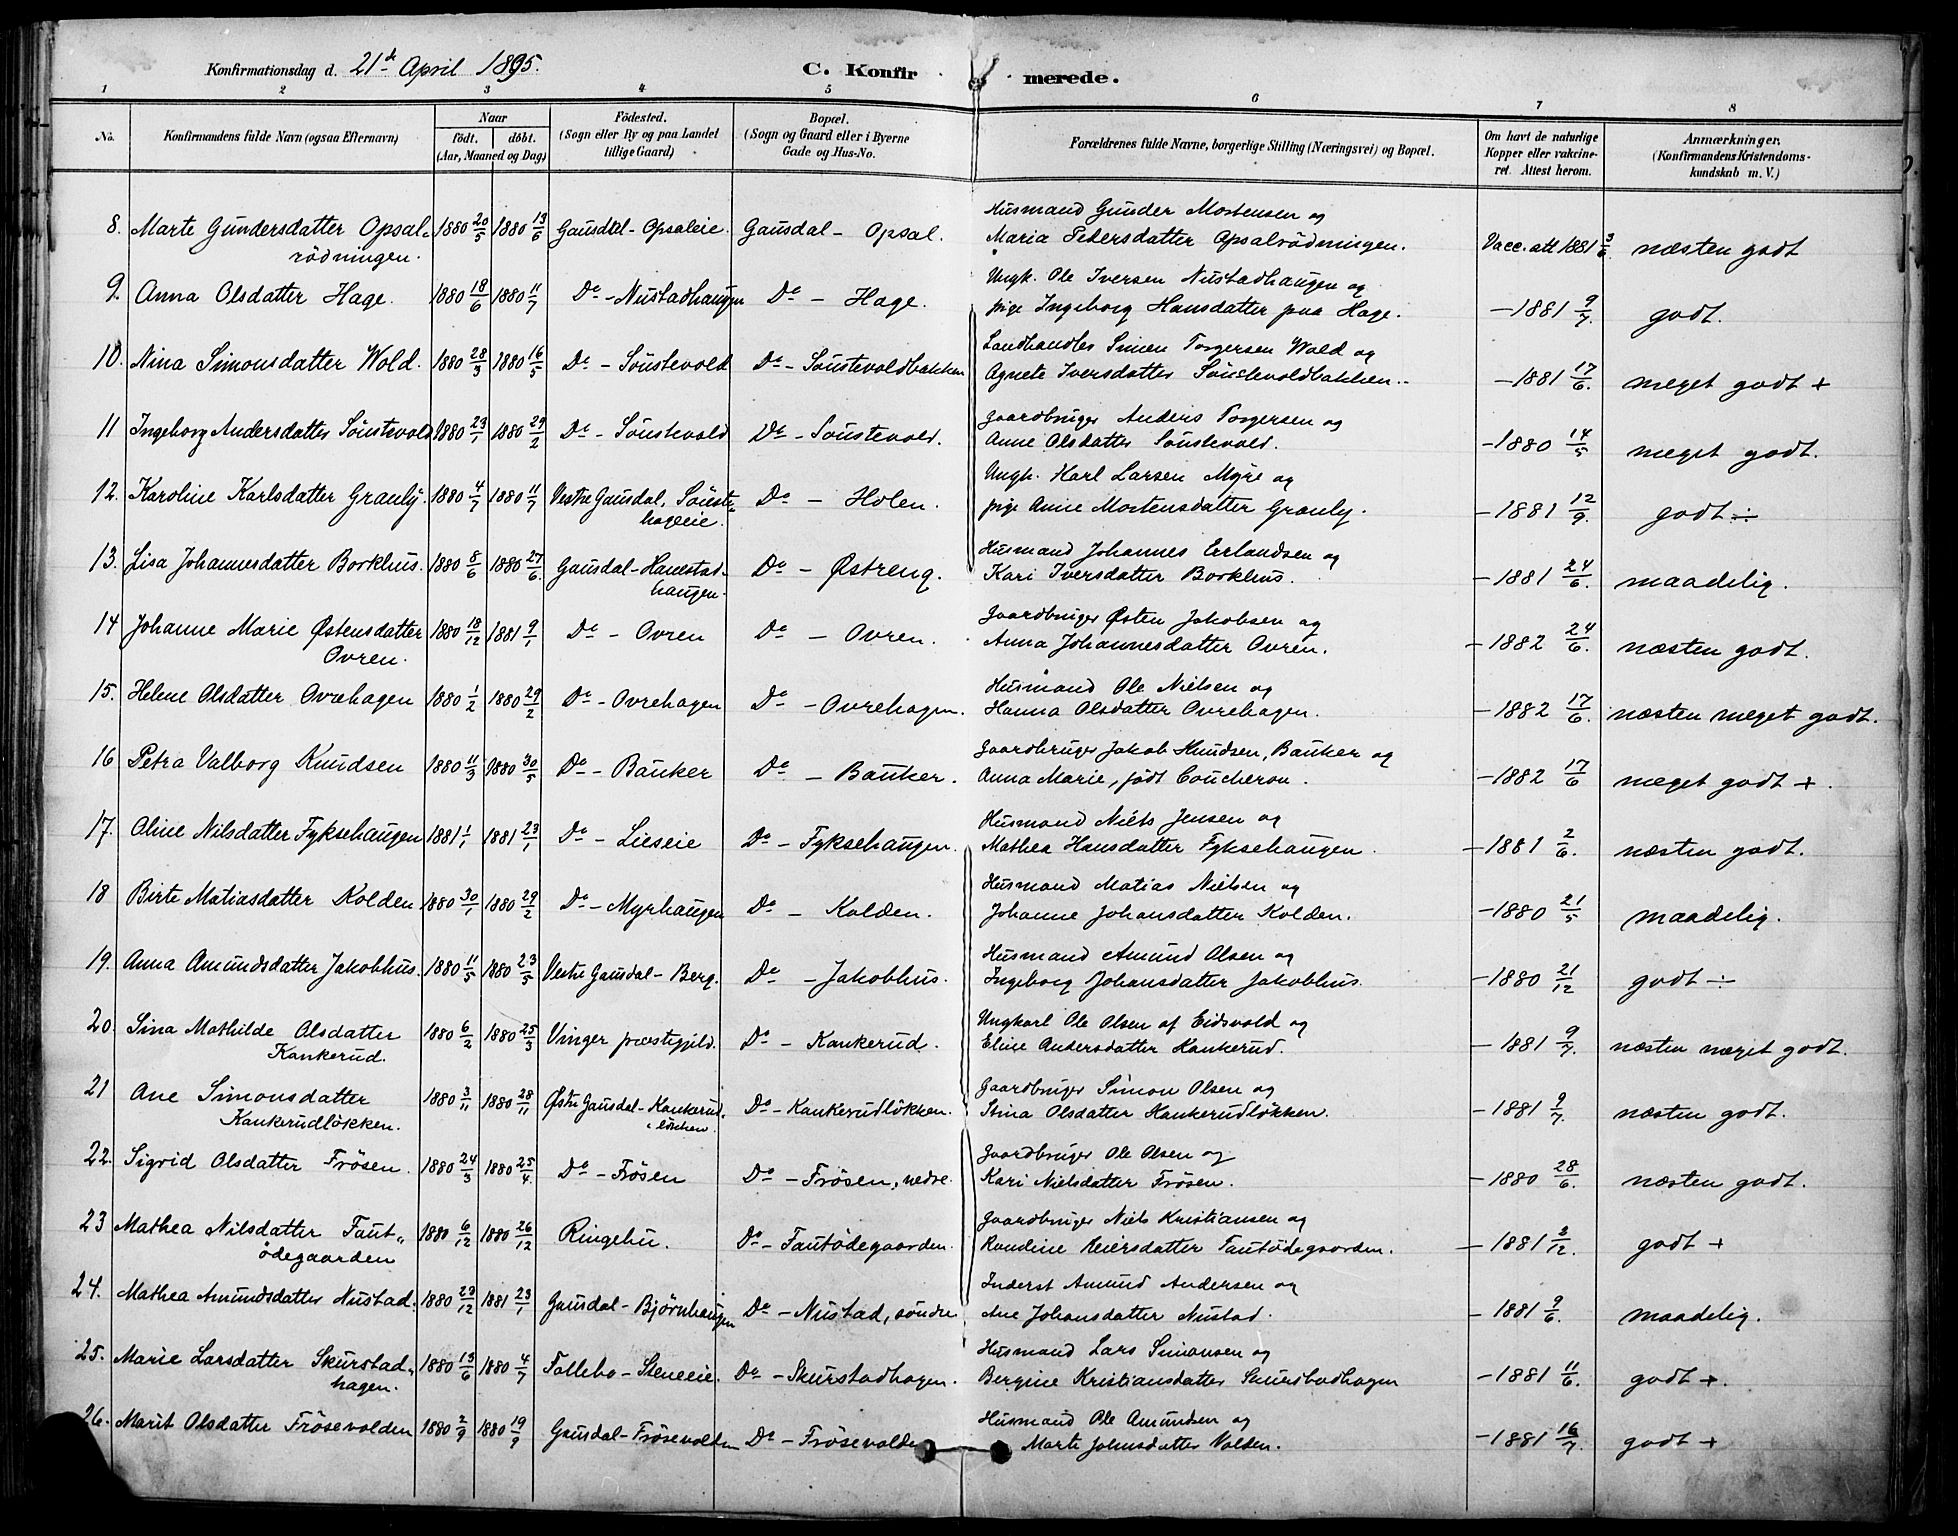 Konfirmationsdag d. 21de April 1895.
C. Konfirmerede.
1 2 3 4 5 6 7 8
No. Konfirmandens fulde Navn (ogsaa Efternavn) Naar født. døbt. (Aar, Maaned og Dag) Fødested. (Sogn eller By og paa Landet tillige Gaard) Bopæl. (Sogn og Gaard eller i Byerne Gade og Hus-No. Forældrenes fulde Navne, borgerlige Stilling (Næringsvei) og Bopæl. Om havt de naturlige Kopper eller vakcineret. Attest herom. Anmærkninger. (Konfirmandens Kristendomskundskab m. V.)
8. Marte Gundersdatter Opsal- 1880 20/5 1880 13/6 Gausdal - Opsaleie. Gausdal - Opsal. Husmand Gunder Mortensen og
rödningen. Maria Pedersdatter Opsalrödningen. Vacc. att. 1881 3/6. næsten godt
9. Anna Olsdatter Hage. 1880 18/6 1880 11/7 Do - Nustadhaugen Do - Hage. Ungk. Ole Iversen Nustadhaugen og
pige Ingeborg Hansdatter paa Hage. - 1881 9/7. godt.
10. Nina Simonsdatter Wold. 1880 28/3 1880 16/5 Do - Sönstevold Do - Sönstevoldbakken Landhandler Simen Torgersen Wold og
Agnete Iversdatter Sönstevoldbakken. - 1881 17/6. meget godt +
11 Ingeborg Andersdatter Sönstevold 1880 23/1 1880 29/2 Do - Sönstevold Do - Sönstevold. Gaardbruger Anders Torgersen og
Anne Olsdatter Sönstevold. - 1880 14/5 meget godt.
12. Karoline Karlsdatter Granly. 1880 4/7 1880 11/7 Vestre Gausdal, Sönste- Do - Holen. Ungk. Karl Larsen Myre og
hageeie. pige Anne Mortensdatter Granly. - 1881 12/9. godt ÷
13. Lisa Johannesdatter Borkhus. 1880 8/6 1880 27/6. Gausdal - Hanestad- Do - Østreng. Husmand Johannes Erlandsen og
haugen. Kari Iversdatter Borkhus. - 1881 24/6. maadelig.
14 Johanne Marie Østensdatter 1880 18/12 1881 9/1 Do - Ovren Do - Ovren. Gaardbruger Østen Jakobsen og
Ovren. Anna Johannesdatter Ovren. - 1882 24/6. næsten godt.
15. Helene Olsdatter Ovrehagen 1880 1/2 1880 29/2 Do - Ovrehagen Do - Ovrehagen. Husmand Ole Nielsen og
Hanna Olsdatter Ovrehagen. - 1882 17/6. næsten meget godt.
16 Petra Valborg Knudsen 1880 11/3 1880 30/5 Do - Bauker Do - Bauker. Gaardbruger Jakob Knudsen, Bauker og
Anna Marie, født Coucheron. - 1882 17/6 meget godt +.
17. Oline Nilsdatter Fyksehaugen 1881 1/1 1881 23/1 Do - Lieseie Do - Fyksehaugen. Husmand Niels Jensen og
Mathea Hansdatter Fyksehaugen. - 1881 2/6. næsten godt.
18 Birte Matiasdatter Kolden 1880 30/1 1880 29/2 Do - Myrhaugen Do - Kolden. Husmand Matias Nielsen og
Johanne Johansdatter Kolden. - 1880 21/5 maadelig.
19. Anna Amundsdatter Jakobhus. 1880 11/5 1880 23/5 Vestre Gausdal - Berg. Do - Jakobhus. Husmand Amund Olsen og
Ingeborg Johansdatter Jakobhus. - 1880 21/12 godt ÷
20. Sina Mathilde Olsdatter 1880 6/2 1880 25/3 Vinger præstegjeld. Do - Kankerud. Ungkarl Ole Olsen af Eidsvold og
Kankerud. Eline Andersdatter Kankerud. - 1881 9/7. næsten meget godt.
21 Ane Simonsdatter 1880 3/11 1880 28/11 Østre Gausdal - Kankerud- Do - Kankerudlökken. Gaardbruger Simon Olsen og
Kankerudlökken. lökken. Stina Olsdatter Kankerudlökken. - 1881 9/7. næsten godt.
22. Sigrid Olsdatter Frösen. 1880 24/3 1880 25/4. Do - Frösen Do - Frösen, nedre. Gaardbruger Ole Olsen og
Kari Nielsdatter Frösen. - 1880 28/6. næsten godt.
23 Mathea Nilsdatter Faut- 1880 6/12 1880 26/12 Ringebu. Do - Fautödegaarden. Gaardbruger Niels Kristiansen og
ödegaarden Randine Reiersdatter Fautödegaarden. - 1881 3/12. godt +
24. Mathea Amundsdatter Nustad. 1880 23/12 1881 23/1 Gausdal - Björnhaugen Do - Nustad, söndre Inderst Amund Andersen og
Ane Johansdatter Nustad. - 1881 9/6. maadelig.
25. Marie Larsdatter Skurstad- 1880 13/6 1880 4/7 Follebo - Steneeie. Do - Skurstadhagen. Husmand Lars Simonsen og
hagen. Bergine Kristiansdatter Skurstadhagen - 1881 11/6. godt +.
26. Marit Olsdatter Frösevolden 1880 2/9 1880 19/9 Gausdal - Frösevolden Do - Frösevolden Husmand Ole Amundsen og
Marte Johnsdatter Volden. - 1881 16/7. godt +